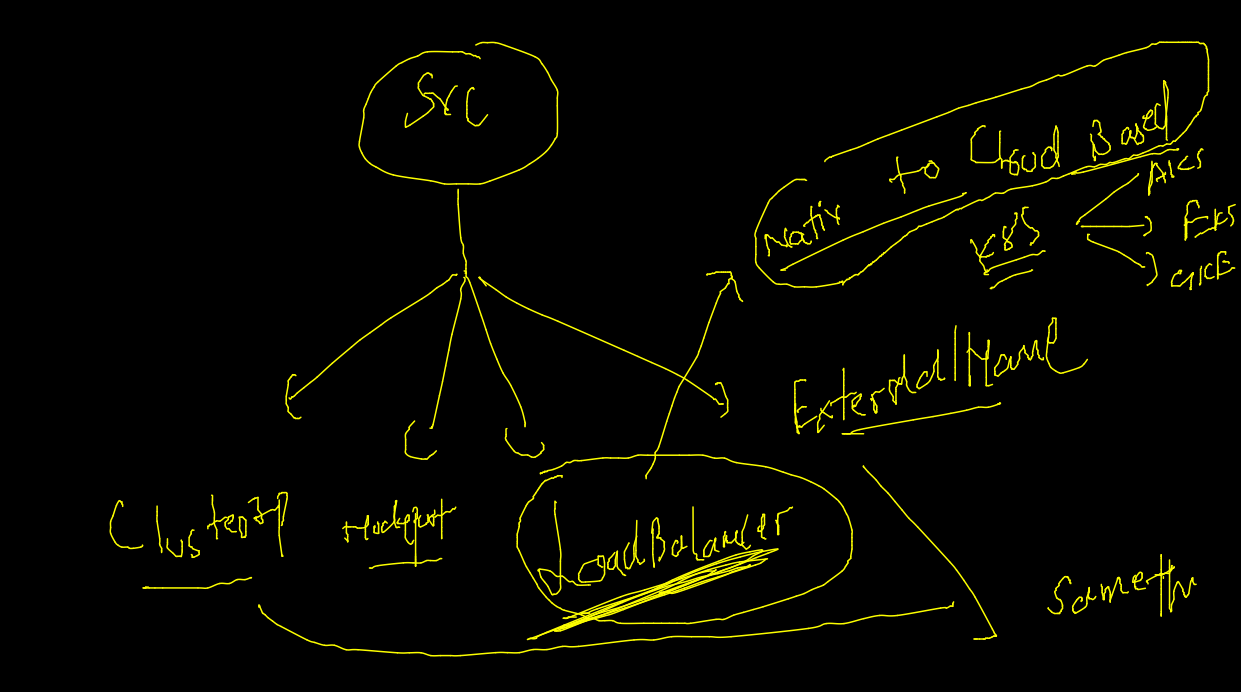 Svc
Nativ to Cloud Based
K8S
AKS
EKS
GKE
External Name
ClusterIP
Nodeport
LoadBalancer
Someth